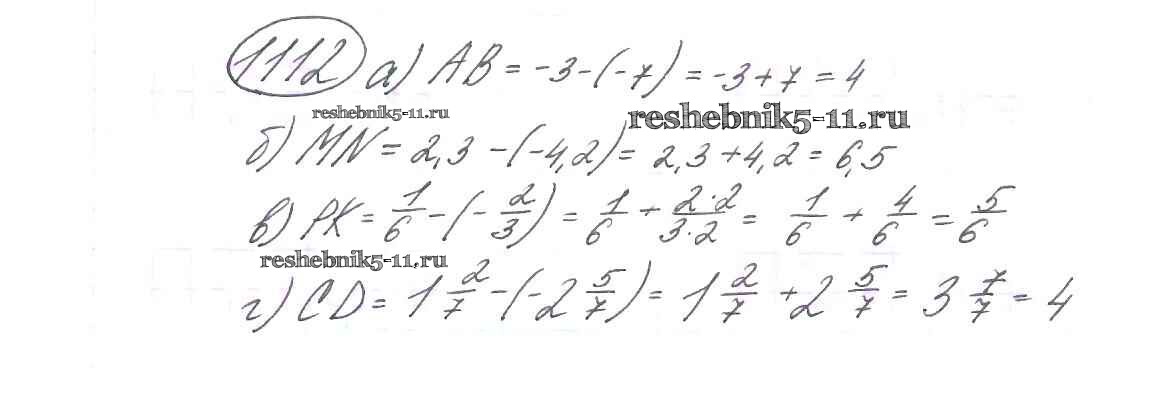 1112 а) AB = -3-(-7) = -3+7 = 4
reshebnik5-11.ru reshebnik5-11.ru
б) MN = 2,3 -(-4,2) = 2,3+4,2 = 6,5
в) PK = 1/6 - (- 2/3) = 1/6 + 2·2/3·2 = 1/6 + 4/6 = 5/6
reshebnik5-11.ru
г) CD = 1 2/7 - (-2 5/7) = 1 2/7 + 2 5/7 = 3 7/7 = 4